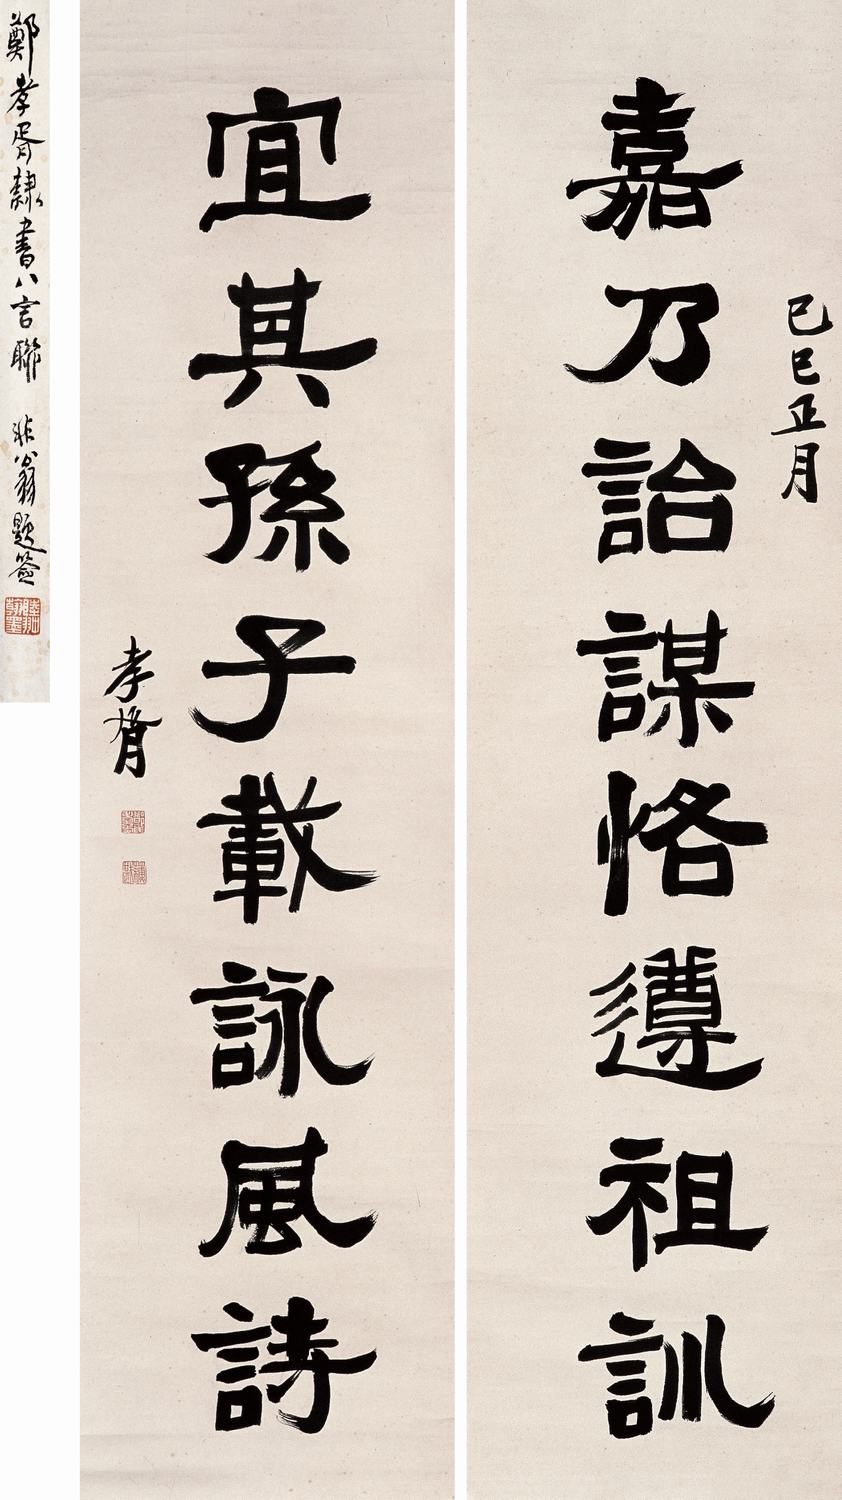 己巳正月
嘉乃詒謀恪遵祖訓
宜其孫子載詠風詩
孝胥
鄭孝胥隸書八言聯 非翁題簽